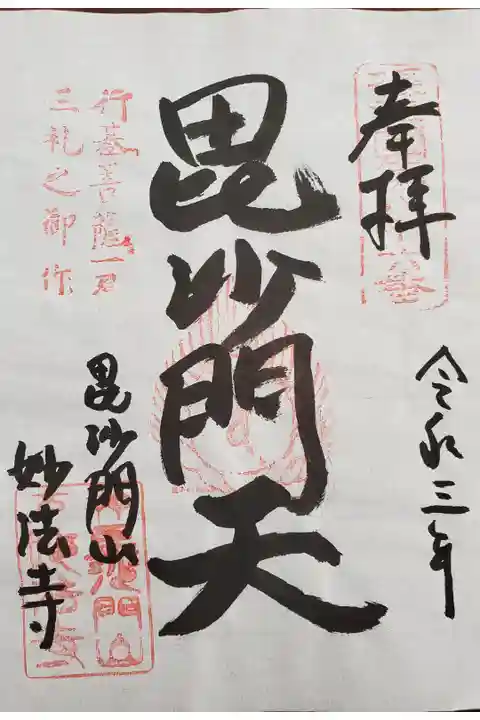 奉拝
令和三年
毘沙門天
行基菩薩一刀
三礼之御作
毘沙門山
妙法寺